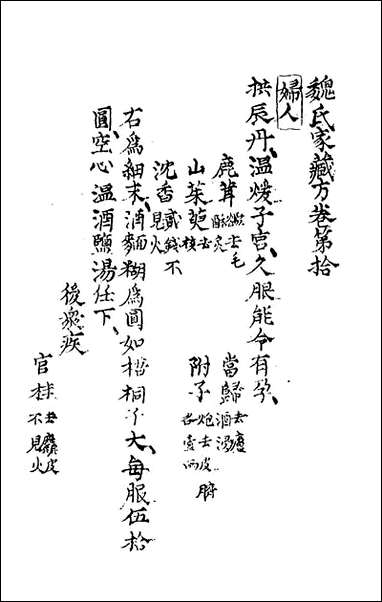 魏氏家藏方卷第拾
婦人
拱辰丹、温煖子宮、久服能令有孕、
鹿茸 去毛酥炙 當歸 去蘆酒浸
山茱萸 去核 附子 炮去皮臍各壹两
沈香 貳錢不見火
右爲細末、酒麵糊爲圓如梧桐子大、每服伍拾
圓、空心温酒鹽湯任下、
後衆疾
官桂 去麤皮不見火